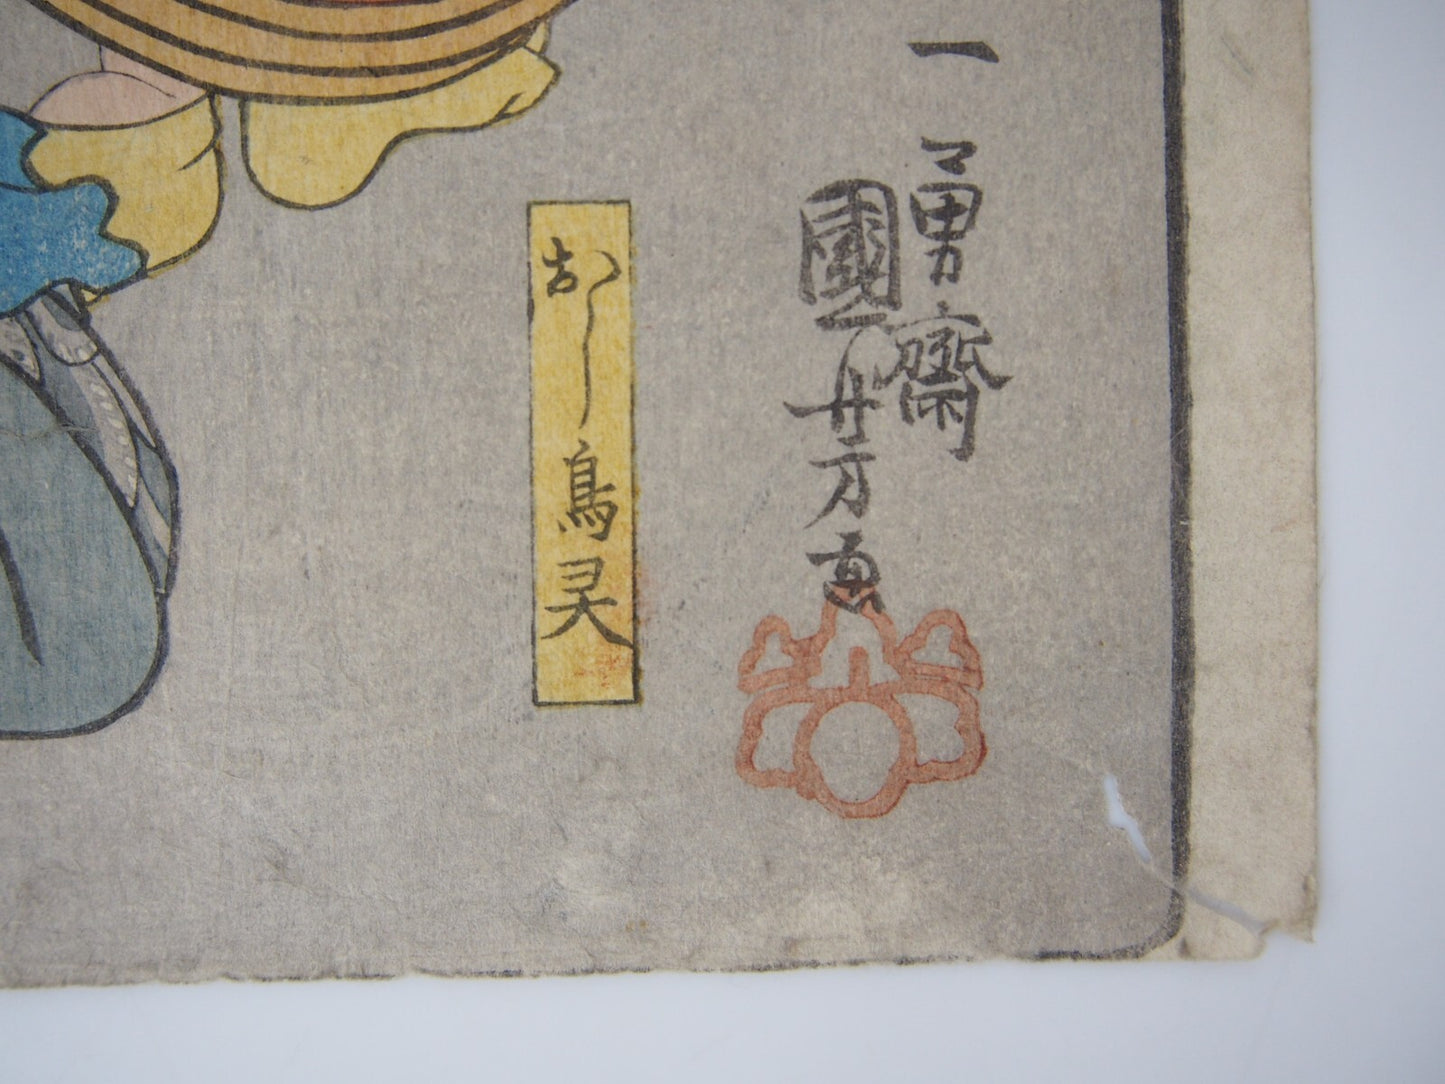 一勇齋
國芳画
おし鳥灵